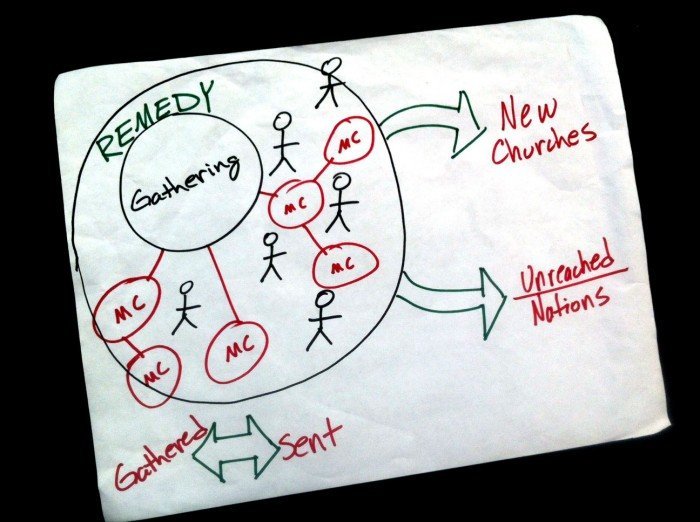 REMEDY
Gathering
MC
MC
MC
MC
MC
MC
New
Churches
Unreached
Nations
Gathered
Sent